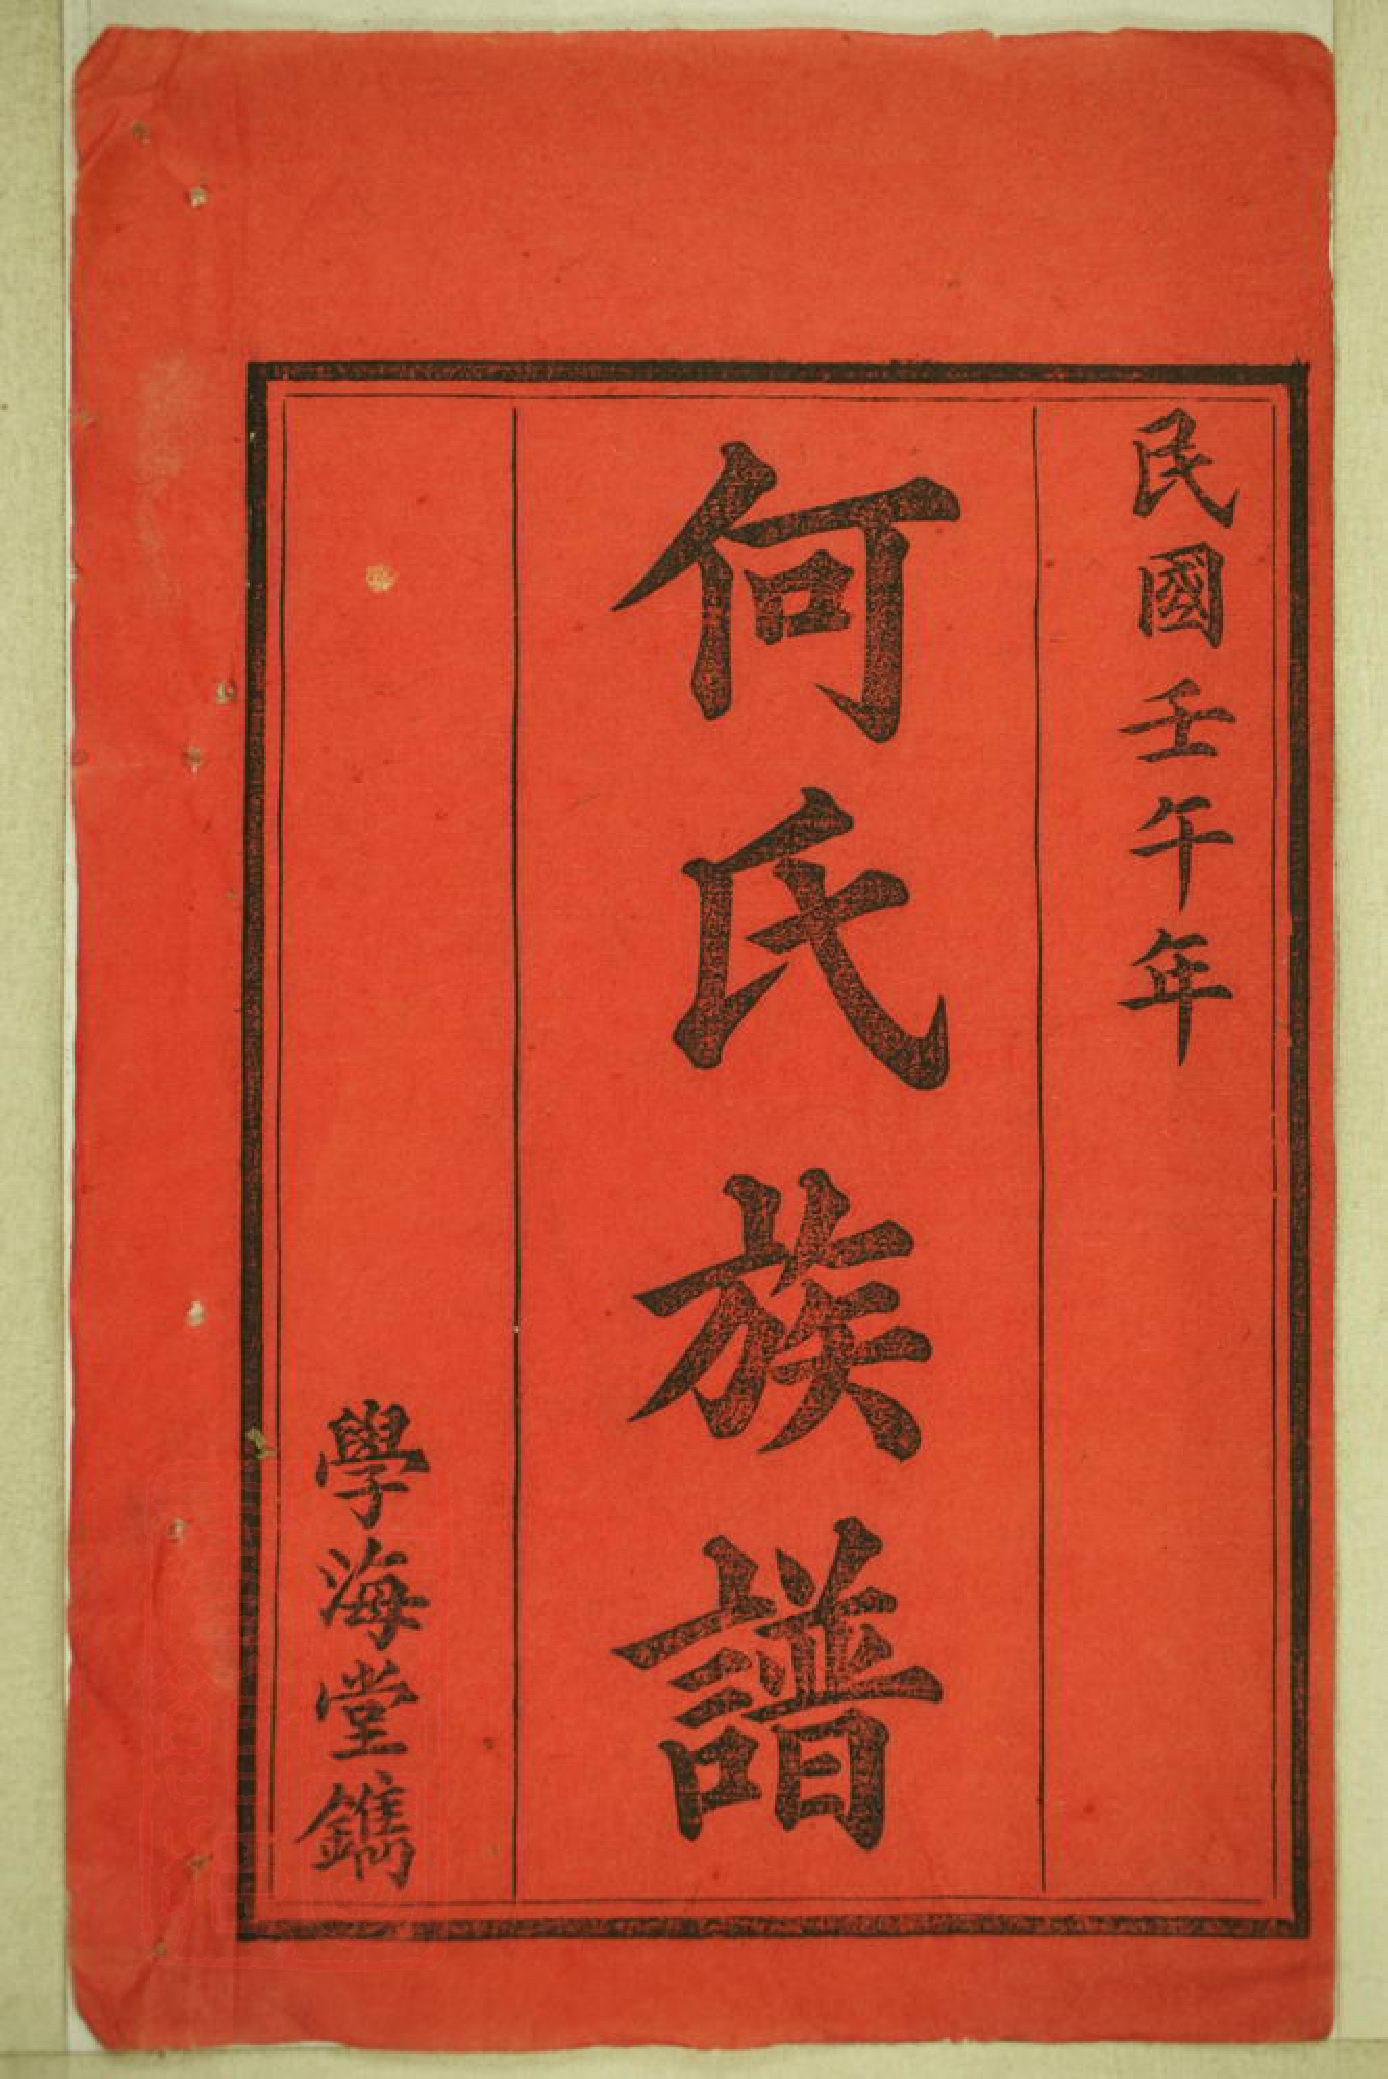 民國壬午年
何氏族譜
學海堂鐫